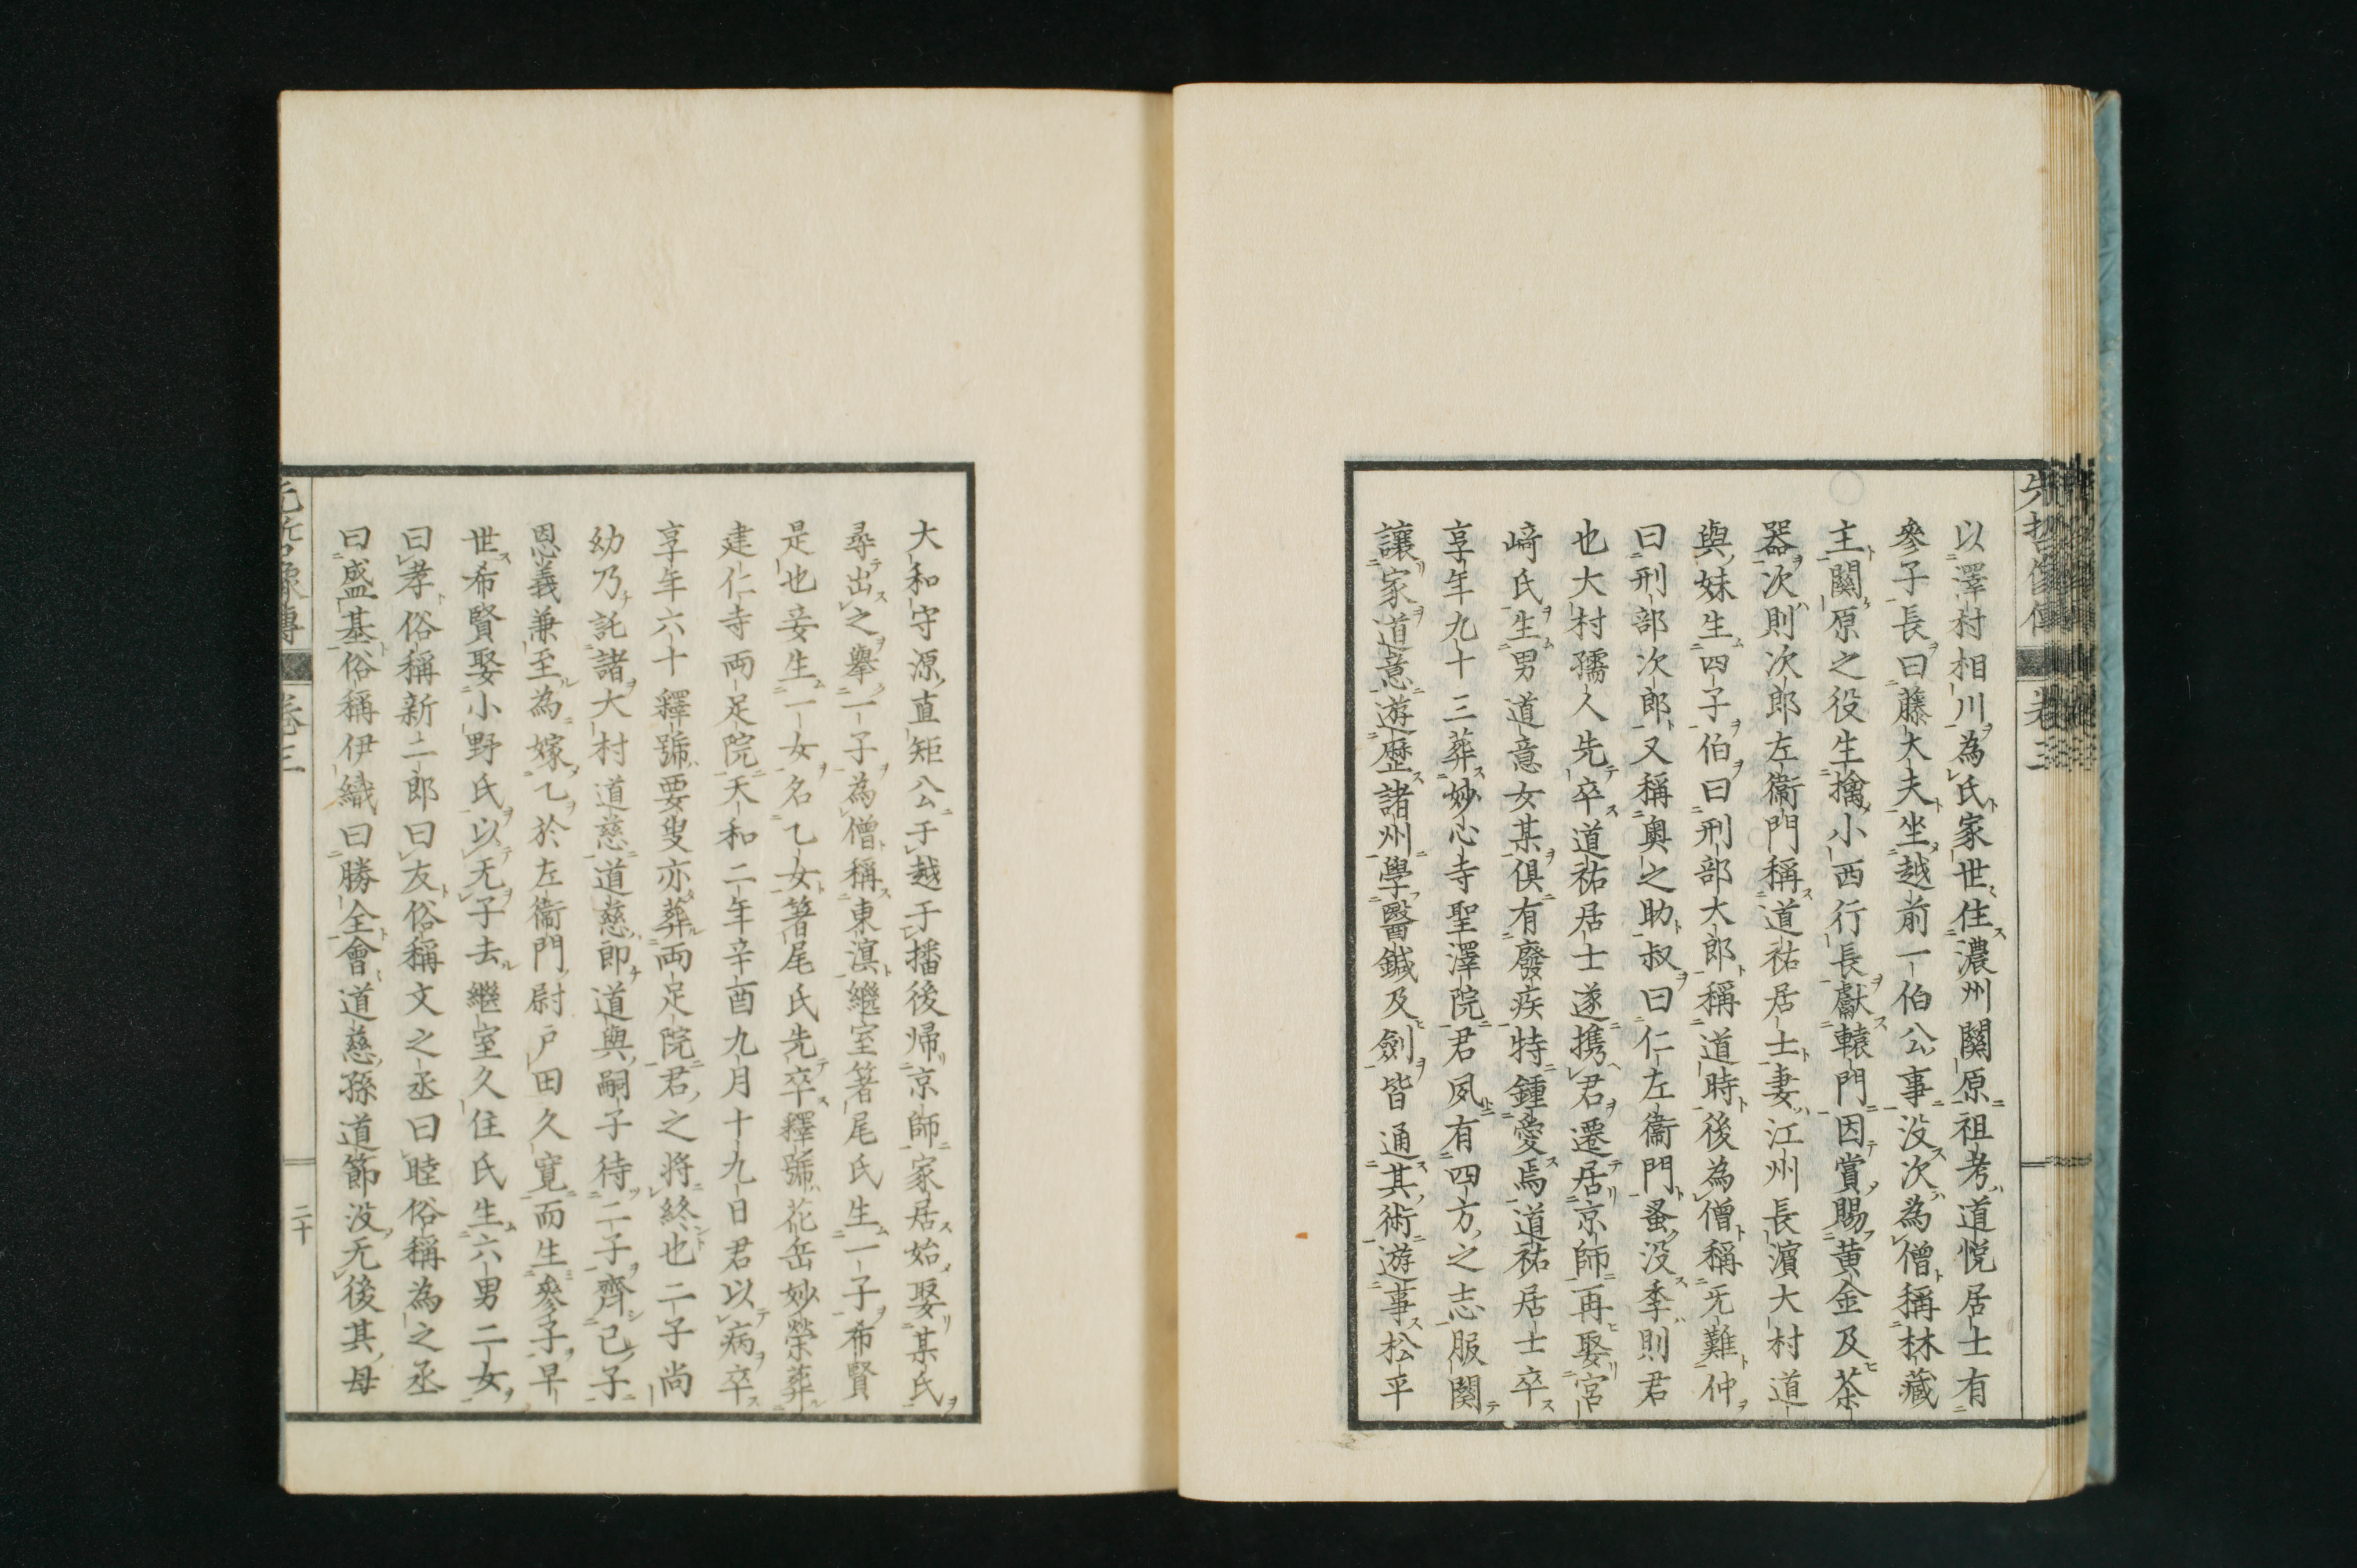 以澤村相川為氏家世住濃州關原祖考道悦居士有
參子長曰藤大夫坐越前一伯公事没次為僧稱林藏
主關原之役生擒小西行長獻轅門因賞賜黄金及茶
器次則次郎左衞門稱道祐居士妻江州長濵大村道
與妹生四子伯曰刑部大郎稱道時後為僧稱旡難仲
曰刑部次郎又稱奥之助叔曰仁左衞門蚤没季則君
也大村孺人先卒道祐居士遂携君遷居京師再娶宮
﨑氏生男道意女某俱有廢疾特鍾愛焉道祐居士卒
享年九十三葬妙心寺聖澤院君夙有四方之志服闋
讓家道意遊歷諸州學醫鍼及劍皆通其術遊事松平
大和守源直矩公于越于播後帰京師家居始娶某氏
尋出之擧一子為僧稱東溟繼室箸尾氏生一子希賢
是也妾生一女名乙女箸尾氏先卒釋號花岳妙榮葬
建仁寺両足院天和二年辛酉九月十九日君以病卒
享年六十釋號要叟亦葬両足院君之将終也二子尚
幼乃託諸大村道慈道慈即道與嗣子待二子齊己子
恩義兼至為嫁乙於左衞門尉戸田久寛而生參子早
世希賢娶小野氏以无子去繼室久住氏生六男二女
曰孝俗稱新二郎曰友俗稱文之丞曰睦俗稱為之丞
曰盛基俗稱伊織曰勝全會道慈孫道節没无後其母
先哲像傳
卷三
二十